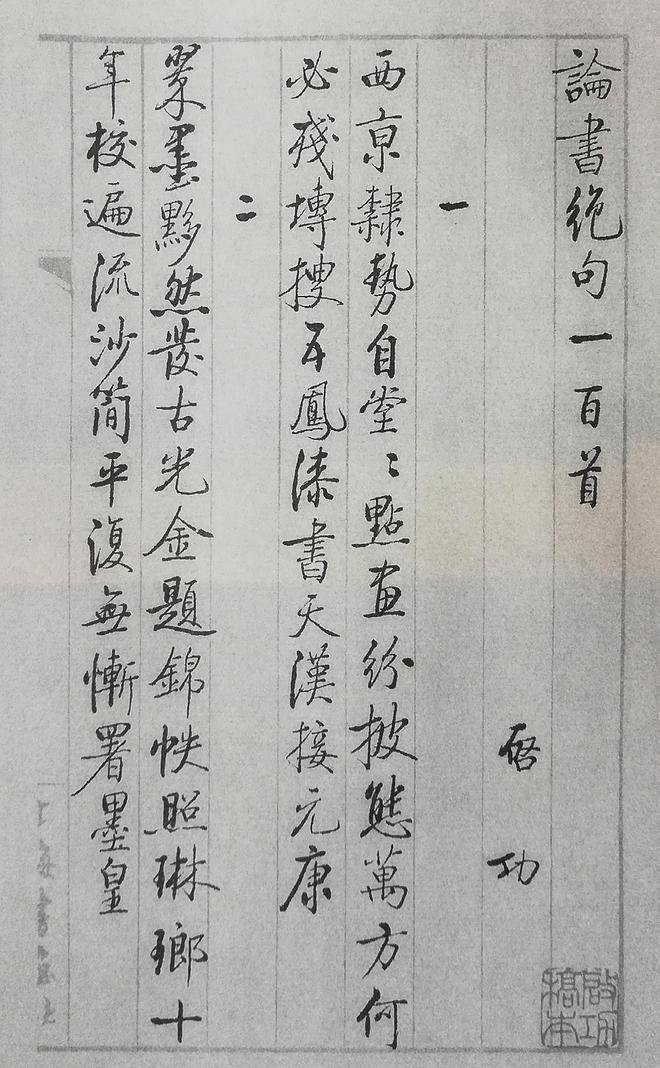 論書絶句一百首
啓功
一
西京隸勢自堂〻點畫紛披態萬方何
必殘塼搜五鳳漆書天漢接元康
二
翠墨黟然發古光金題錦帙照琳瑯十
年校遍流沙簡平復無慚署墨皇
啟功稿本